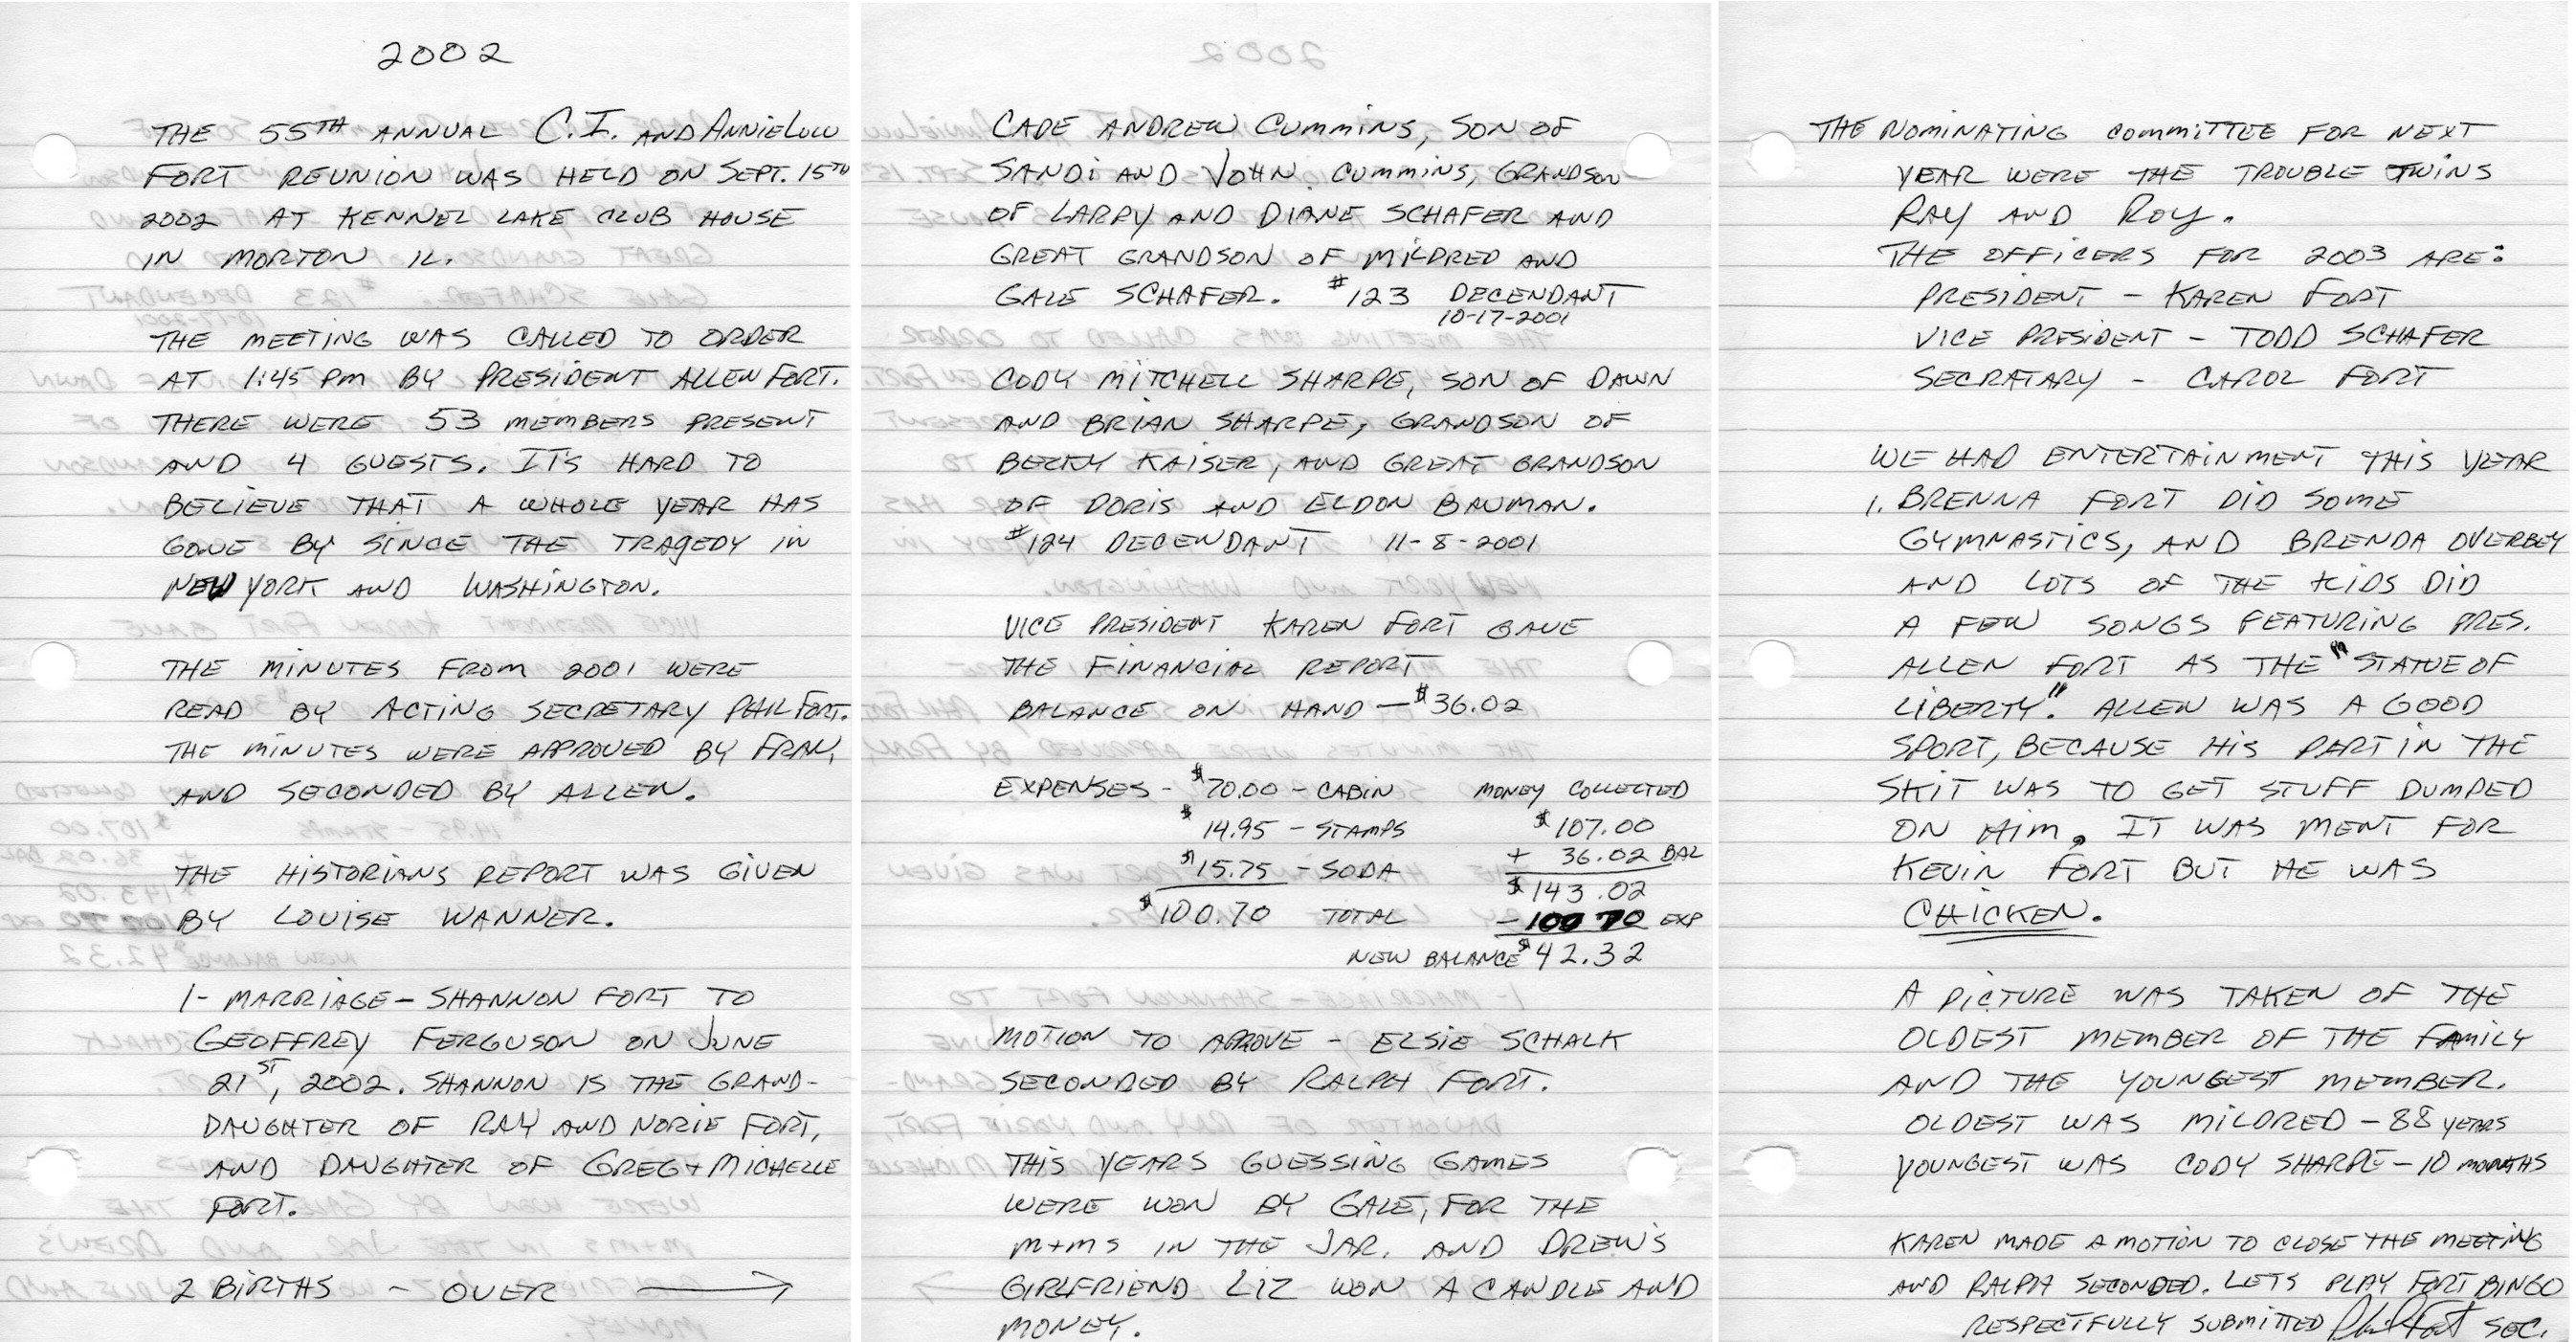 2002
THE 55TH ANNUAL C.I. AND ANNIE LOU
FORT REUNION WAS HELD ON SEPT. 15TH
2002 AT KENNEL LAKE CLUB HOUSE
IN MORTON IL.
THE MEETING WAS CALLED TO ORDER
AT 1:45 PM BY PRESIDENT ALLEN FORT.
THERE WERE 53 MEMBERS PRESENT
AND 4 GUESTS. IT'S HARD TO
BELIEVE THAT A WHOLE YEAR HAS
GONE BY SINCE THE TRAGEDY IN
NEW YORK AND WASHINGTON.
THE MINUTES FROM 2001 WERE
READ BY ACTING SECRETARY PHIL FORT.
THE MINUTES WERE APPROVED BY FRAN,
AND SECONDED BY ALLEN.
THE HISTORIANS REPORT WAS GIVEN
BY LOUISE WANNER.
1- MARRIAGE - SHANNON FORT TO
GEOFFREY FERGUSON ON JUNE
21ST, 2002. SHANNON IS THE GRAND-
DAUGHTER OF RAY AND NORIE FORT,
AND DAUGHTER OF GREG + MICHELLE
FORT.
2 BIRTHS - OVER →
CADE ANDREW CUMMINS, SON OF
SANDI AND JOHN CUMMINS, GRANDSON
OF LARRY AND DIANE SCHAFER AND
GREAT GRANDSON OF MILDRED AND
GALE SCHAFER. #123 DECENDANT
10-17-2001
CODY MITCHELL SHARPE, SON OF DAWN
AND BRIAN SHARPE, GRANDSON OF
BECKY KAISER, AND GREAT GRANDSON
OF DORIS AND ELDON BAUMAN.
#124 DECENDANT 11-8-2001
VICE PRESIDENT KAREN FORT GAVE
THE FINANCIAL REPORT
BALANCE ON HAND - $36.02
EXPENSES - $70.00 - CABIN MONEY COLLECTED
$14.95 - STAMPS $107.00
$15.75 - SODA + 36.02 BAL
$100.70 TOTAL $143.02
- 100 70 EXP
NEW BALANCE $42.32
MOTION TO APROVE - ELSIE SCHALK
SECONDED BY RALPH FORT.
THIS YEARS GUESSING GAMES
WERE WON BY GALE, FOR THE
M+MS IN THE JAR. AND DREW'S
GIRLFRIEND LIZ WON A CANDLE AND
MONEY.
THE NOMINATING COMMITTEE FOR NEXT
YEAR WERE THE TROUBLE TWINS
RAY AND ROY.
THE OFFICERS FOR 2003 ARE:
PRESIDENT - KAREN FORT
VICE PRESIDENT - TODD SCHAFER
SECRATARY - CAROL FORT
WE HAD ENTERTAINMENT THIS YEAR
1. BRENNA FORT DID SOME
GYMNASTICS, AND BRENDA OVERBEY
AND LOTS OF THE KIDS DID
A FEW SONGS FEATURING PRES.
ALLEN FORT AS THE "STATUE OF
LIBERTY". ALLEN WAS A GOOD
SPORT, BECAUSE HIS PART IN THE
SKIT WAS TO GET STUFF DUMPED
ON HIM. IT WAS MENT FOR
KEVIN FORT BUT HE WAS
CHICKEN.
A PICTURE WAS TAKEN OF THE
OLDEST MEMBER OF THE FAMILY
AND THE YOUNGEST MEMBER.
OLDEST WAS MILDRED - 88 YEARS
YOUNGEST WAS CODY SHARPE - 10 MONTHS
KAREN MADE A MOTION TO CLOSE THE MEETING
AND RALPH SECONDED. LETS PLAY FORT BINGO
RESPECTFULLY SUBMITTED Phil Fort SEC.